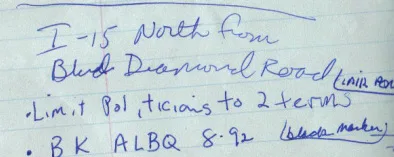 I-15 North from
Blud Diamond Road
• Limit Politicians to 2 terms
• BK ALBQ 8-92 (black marker)